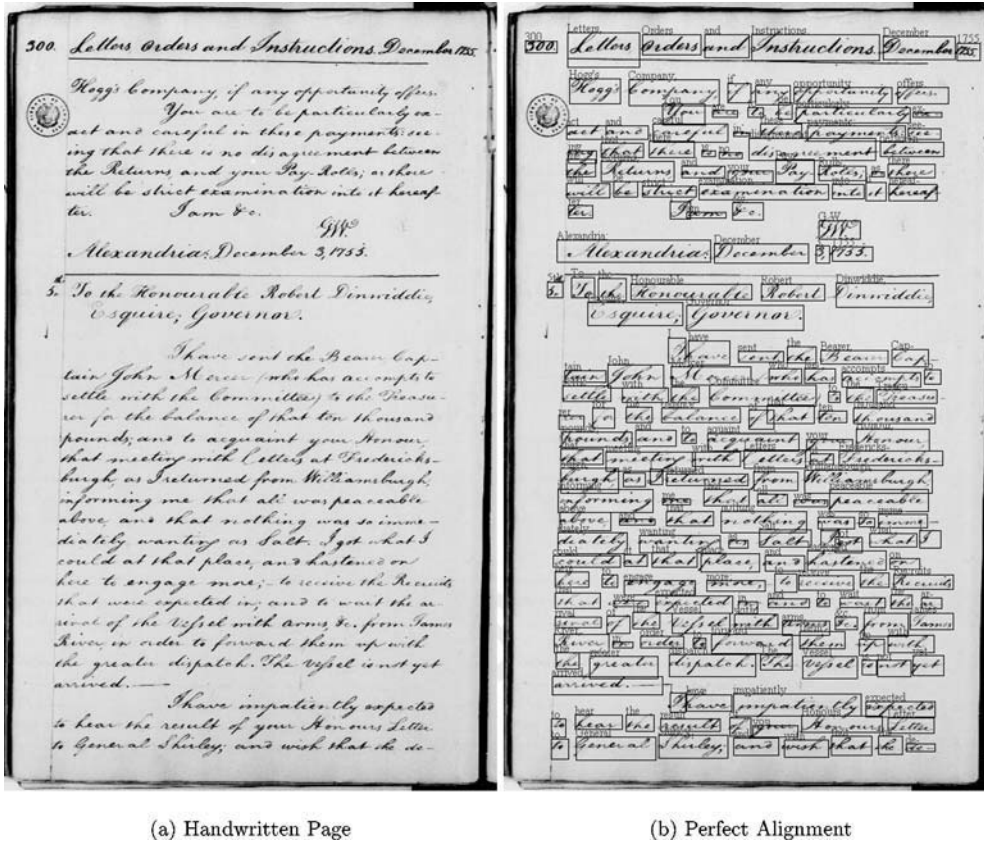 300. Letters, Orders and Instructions. December 1755.
Hogg's Company, if any opportunity offers.
You are to be particularly ex-
act and careful in these payments: see-
ing that there is no disagreement between
the Returns, and your Pay-Rolls; as there
will be strict examination into it hereaf-
ter. I am &c.
GW
Alexandria: December 3, 1755.
5th. To the Honourable Robert Dinwiddie,
Esquire; Governor.
I have sent the Bearer Cap-
tain John Mercer (who has accompts to
settle with the Committee) to the Treasu-
rer for the balance of that ten thousand
pounds; and to acquaint your Honour,
that meeting with Letters at Fredericks-
burgh, as I returned from Williamsburgh,
informing me that all was peaceable
above, and that nothing was so imme-
diately wanting as Salt. I got what I
could at that place, and hastened on
here to engage more;- to receive the Recruits
that were expected in; and to wait the ar-
rival of the Vessel with arms, &c. from James
River, in order to forward them up with
the greater dispatch. The Vessel is not yet
arrived.—
I have impatiently expected
to hear the result of your Honours Letter
to General Shirley; and wish that the de-
(a) Handwritten Page
300. Letters, Orders and Instructions. December 1755.
Hogg's Company, if any opportunity offers.
You are to be particularly ex-
act and careful in these payments: see-
ing that there is no disagreement between
the Returns, and your Pay-Rolls; as there
will be strict examination into it hereaf-
ter. I am &c.
GW
Alexandria: December 3, 1755.
5th. To the Honourable Robert Dinwiddie,
Esquire; Governor.
I have sent the Bearer Cap-
tain John Mercer (who has accompts to
settle with the Committee) to the Treasu-
rer for the balance of that ten thousand
pounds; and to acquaint your Honour,
that meeting with Letters at Fredericks-
burgh, as I returned from Williamsburgh,
informing me that all was peaceable
above, and that nothing was so imme-
diately wanting as Salt. I got what I
could at that place, and hastened on
here to engage more;- to receive the Recruits
that were expected in; and to wait the ar-
rival of the Vessel with arms, &c. from James
River, in order to forward them up with
the greater dispatch. The Vessel is not yet
arrived.—
I have impatiently expected
to hear the result of your Honours Letter
to General Shirley; and wish that the de-
(b) Perfect Alignment